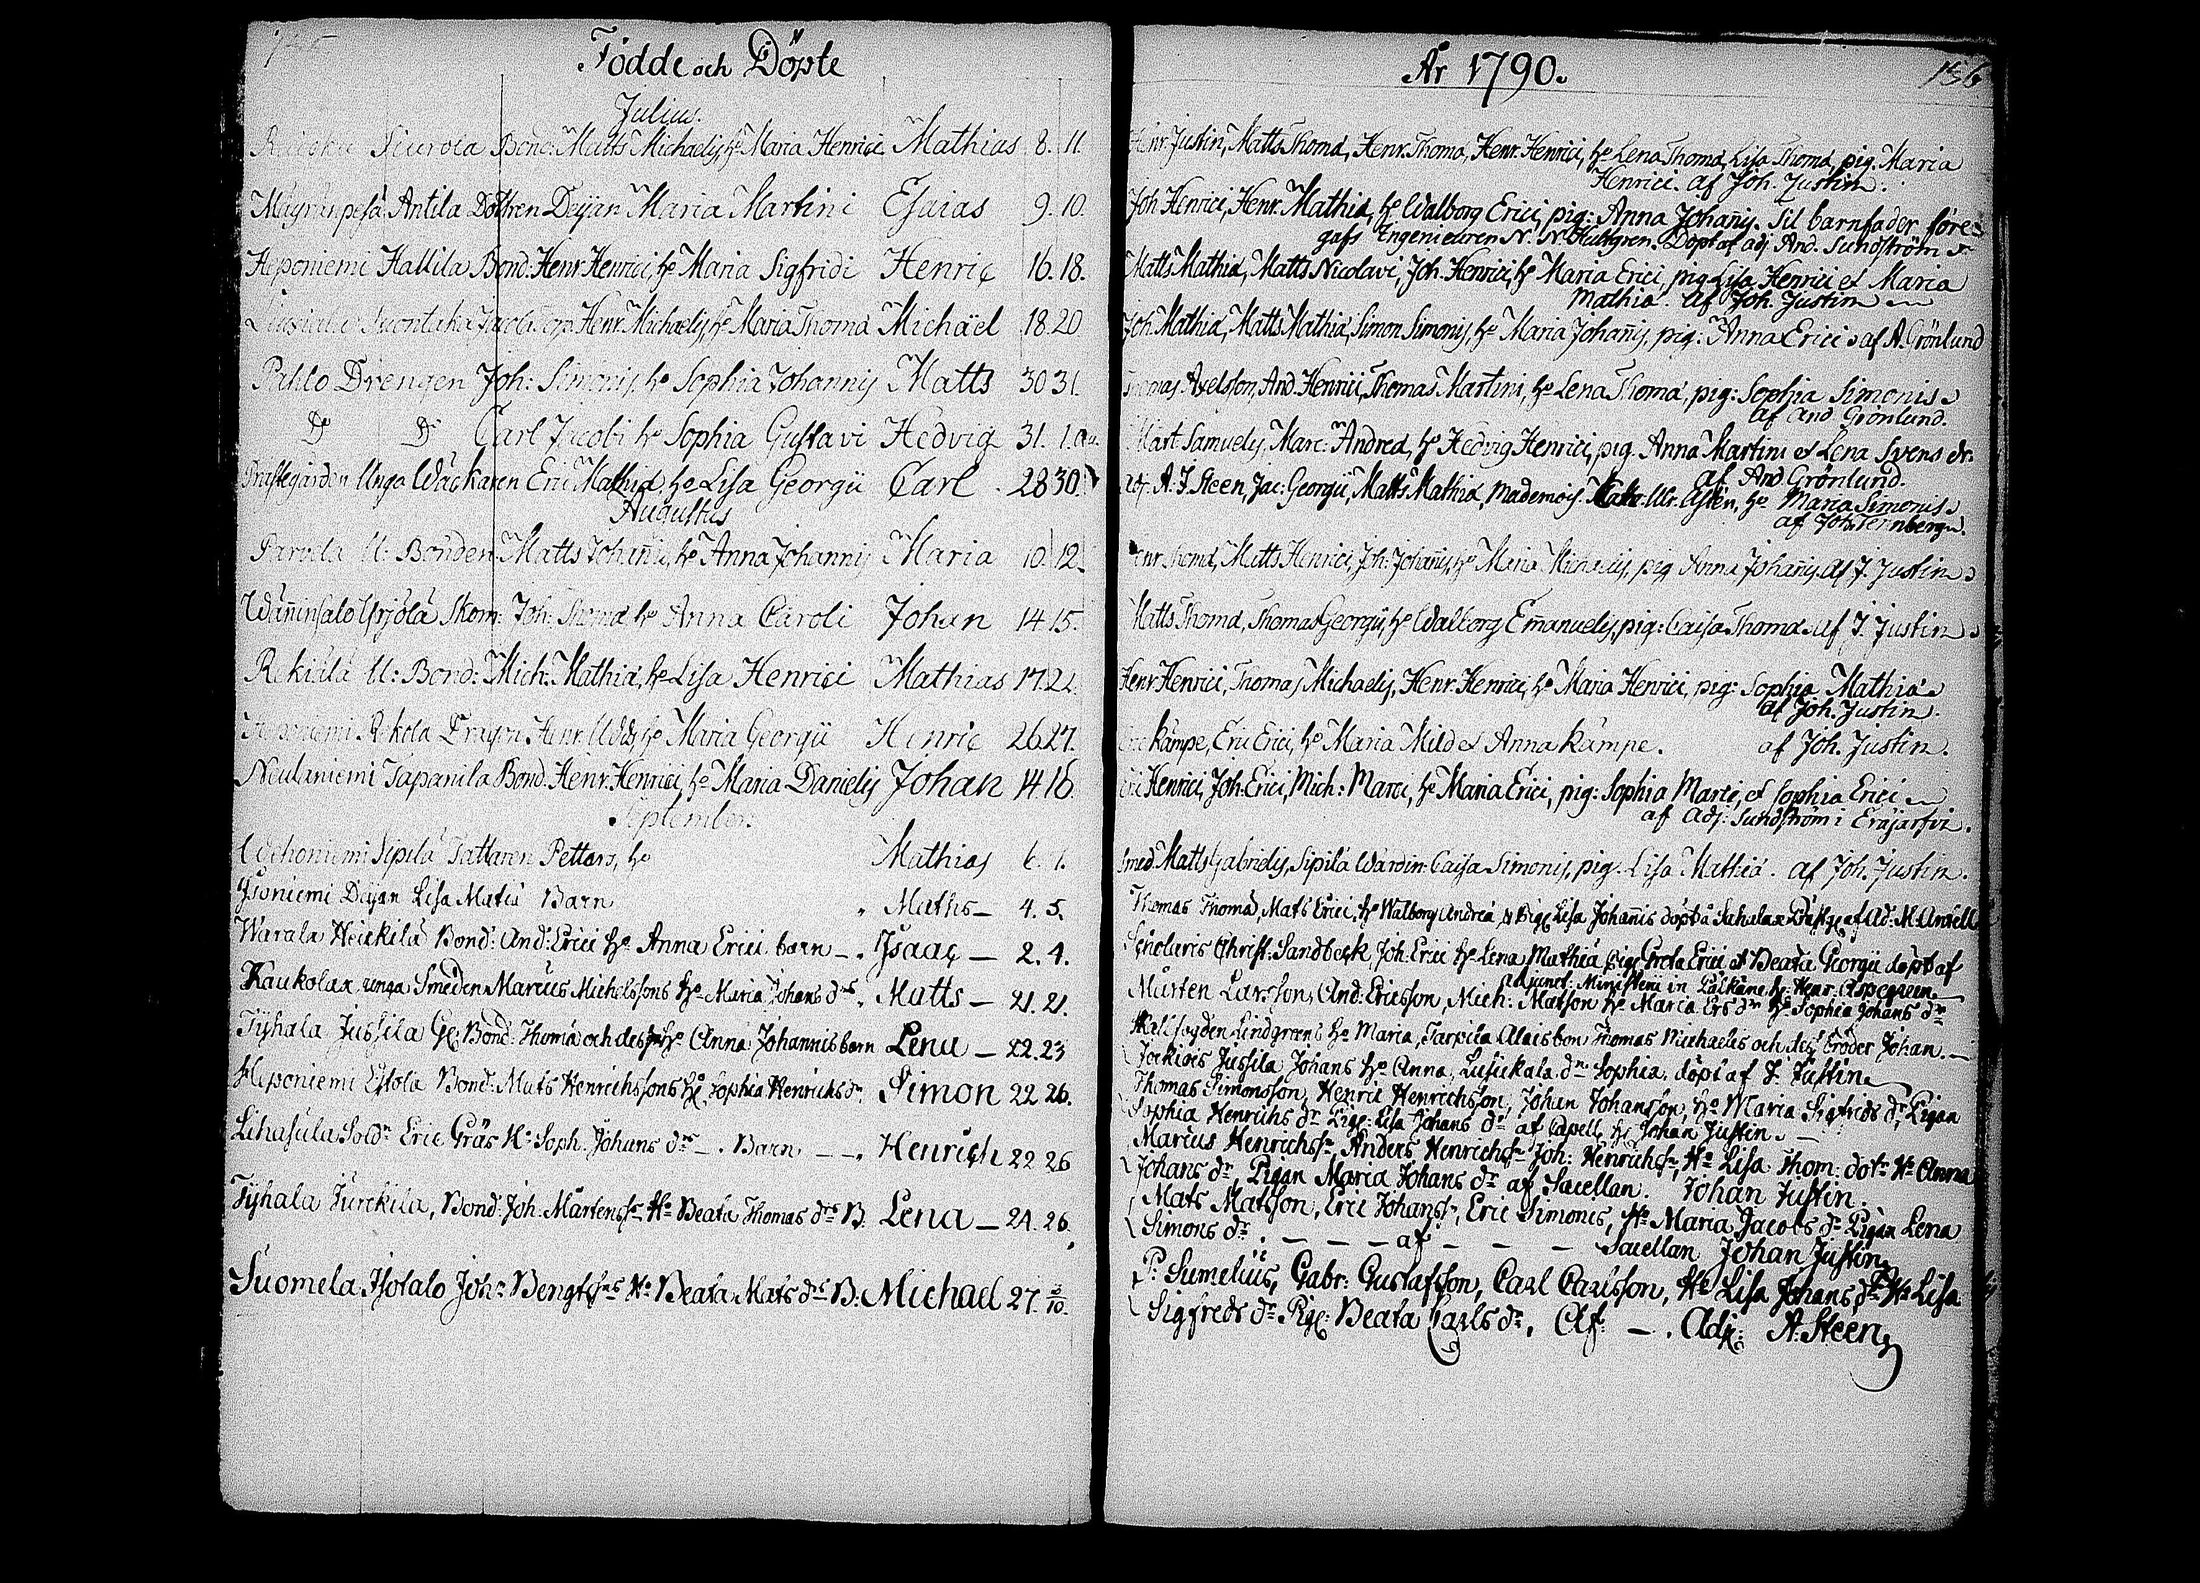 Födde och Döpte
Julius.
Siurola Bond: Matts Michaelis, h: Maria Henrici Mathias 8. 11.
Antila Dottren Deijan Maria Martini Esaias 9. 10.
Heponiemi Hallila Bond: Henr. Henrici, h: Maria Sigfridi Henric 16. 18.
Henr. Michaelis, h: Maria Thomæ Michäel 18. 20.
Pahlo Drengen Joh: Simonis, h: Sophia Johannis Matts 30 31.
D:o D:o Carl Jacobi h: Sophia Gustavi Hedvig 31. 1. Au.
Prästegården Unga Wäckaren Eric Mathiæ h: Lisa Georgii Carl 28 30.
Augustus
U: Bonden Matts Johañis, h: Anna Johannis Maria 10. 12.
Wäñinsalo Yrjölä Skom: Joh: Thomæ h: Anna Caroli Johan 14 15.
Rekiälä U: Bond: Mich: Mathiæ, h: Lisa Henrici Mathias 17. 21.
Heponiemi Rekola Dragon Henr. Udd, h: Maria Georgii Henric 26 27.
Neulaniemi Tapanila Bond. Henr. Henrici, h: Maria Danielis Johan 14 16.
September.
Sipilä Tattaren Petters, h: Mathias 6. 7.
Isoniemi Deijan Lisa Matiæ Barn Maths — 4. 5.
Warala Heickilä Bond: And: Erici h: Anna Erici barn — Isaac — 2. 4.
Kaukolax unga Smeden Marcus Michelssons h: Maria Johans d:rs Matts — 21. 21.
Tyhala Jussila G: Bond: Thomæ och des h: Anna Johannis barn Lena — 22. 23
Heponiemi Eskola Bond: Mats Henrichssons h: Sophia Henrichs dr. Simon 22 26.
Lihasula Sold:n Eric Gräs H: Soph. Johans d:rs — . Barn — —. Henrich 22 26
Tyhala Turckila, Bond: Joh. Mårtenss: H: Beata Thomas d:rs B: Lena — 24. 26.
Suomela Isotalo Joh:n Bengtss:ns H: Beata Mats d:rs B: Michael 27. 3/10.
År 1790.
156
Henr. Justin, Matts Thomæ, Henr. Thomæ, Henr. Henrici, h: Lena Thomæ, Lisa Thomæ, pig. Maria
Henrici. af Joh. Justin.
Joh Henrici, Henr. Mathiæ, h: Walborg Erici, pig: Anna Johañis. Til barnfader före-
gafs Ingenieuren N. N. Hultgren. Döpt af adj. And. Sundström
Matts Mathiæ, Matts Nicolavi, Joh. Henrici, h: Maria Erici, pig Lisa Henrici et Maria
Mathiæ. af Joh. Justin
Joh. Mathiæ, Matts Mathiæ, Simon Simonis, h: Maria Johañis, pig: Anna Erici. af A. Grönlund
Thomas Axelsson, And. Henrici, Thomas Martini, h: Lena Thomæ, pig: Sophia Simonis
af And Grönlund.
Mårt Samuelis, Marc: Andreæ, h: Hedvig Henrici, pig. Anna Martini et Lena Svens dr:
af And Grönlund.
Adj. A. J. Steen, Jac: Georgii, Matts Mathiæ, Mademois. h: Maria Simonis
af Joh. Ternberg.
Henr. Thomæ, Matts Henrici, Joh: Johañis, h: Maria Michaelis, pig Anna Johañis, af J. Justin
Matts Thomæ, Thomas Georgii, h: Walborg Emanuelis, pig: Caisa Thomæ. af J. Justin.
Henr Henrici, Thomas Michaelis, Henr. Henrici, h: Maria Henrici, pig: Sophia Mathiæ
af Joh. Justin.
Eric Kämpe, Eric Erici, h: Maria Mild et Anna Kämpe. af Joh. Justin.
Eric Henrici, Joh: Erici, Mich: Marci, h: Maria Erici, pig: Sophia Marci, et Sophia Erici
af Adj: Sundström i Eräjärfvi.
Smed. Matts Gabrielis, Sipilä Wärdin: Caisa Simonis, pig. Lisa Mathiæ. af Joh. Justin.
Thomas Thomæ, Mats Erici, h: Walborg Andreæ, & Pige Lisa Johañis döpt å Sahalax af Ad: M.
Scholaris Christ: Sandbeck, Joh: Erici h: Lena Mathiæ pige Greta Erici et Beata Georgii döpt af
Adjunct: Ministerii in Pälkäne h: Henr: Aspegreen.
Mårten Larsson, And: Ericsson, Mich: Matson h: Maria Ers dr h: Sophia Johans dr
Lindgreens h: Maria, Tarpila Thomas Michaelis och dess broder Johan. —
Jussila Johans h: Anna, Liuckala dr: Sophia, döpt af J. Justin
Thomas Simonsson, Henric Henrichsson, Johan Johansson, h: Maria Sigfrids dr, Pigan
Sophia Henrichs dr Pige: Lisa Johans dr af Capell: h: Johan Justin. —
Marcus Henrichss:, Anders Henrichss: Joh: Henrichss:, H: Lisa Thom: dotr H: Anna
Johans dr, Pigan Maria Johans dr af Sacellan. Johan Justin.
Mats Matsson, Eric Johanss:, Eric Simonis, H: Maria Jacobs dr Pigan Lena
Simons dr. — — — af — — — Sacellan Johan Justin
P: Sumelius, Gabr: Gustafsson, Carl Carlsson, H: Lisa Johans dr H: Lisa
Sigfreds dr Pige: Beata Carls dr, Af: — . Adj: A: Steen